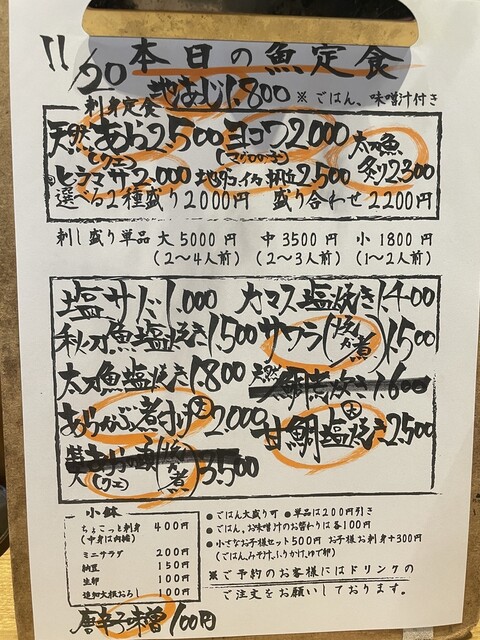 11/20 本日の魚定食
地あじ1.800 ※ごはん、味噌汁付き
刺身定食
天然あら2.500 ヨコワ2.000 太刀魚
(クエ) (マグロの子) 炙り2.300
ヒラマサ2.000 地ダコ、イカ 2.500
選べる2種盛り2000円 盛り合わせ2200円
刺し盛り単品 大5000円 中3500円 小1800円
(2〜4人前) (2〜3人前) (1〜2人前)
塩サバ1.000 カマス塩焼き1.400
秋刀魚塩焼き1.500 サワラ(焼or煮)1.500
太刀魚塩焼き1.800 天然鯛荒炊き1.600
あらかぶ煮付け大2000 甘鯛塩焼き大2.500
特大あらの頭(焼or煮)3.500
(クエ)
小鉢
ちょこっと刺身 400円
(中身は内緒)
ミニサラダ 200円
納豆 150円
生卵 100円
追加大根おろし 100円
唐辛子味噌100円
●ごはん大盛り可 ●単品は200円引き
●ごはん、お味噌汁のお替わりは各100円
●小さなお子様セット500円 お子様お刺身+300円
(ごはん、みそ汁、ふりかけ、ゆで卵)
※ご予約のお客様にはドリンクの
ご注文をお願いしております。